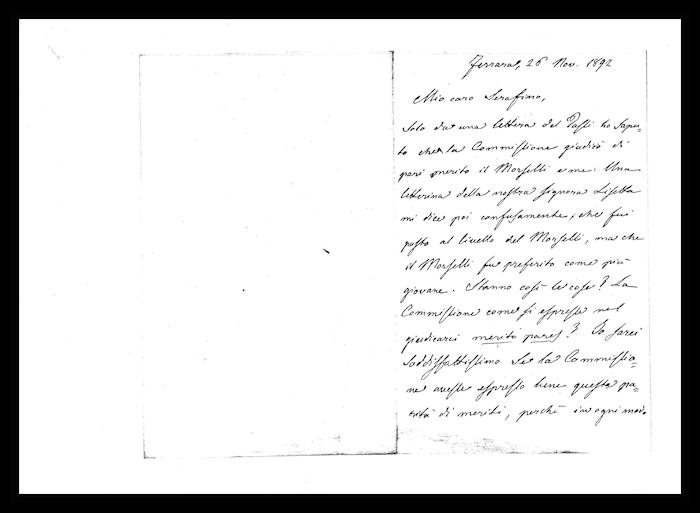 Ferrara, 26 Nov. 1892
Mio caro Serafino,
Solo da una lettera del Passi ho sapu-
to che la Commissione giudicò di
pari merito il Morselli e me. Una
letterina della nostra signora Lisetta
mi dice poi confusamente, che fui
posto al livello del Morselli, ma che
il Morselli fu preferito come più
giovane. Stanno così le cose? La
Commissione come si espresse nel
giudicarci merito pares? Io sarei
soddisfattissimo se la Commissio-
ne avesse espresso bene questa pa-
rità di meriti, perchè in ogni modo